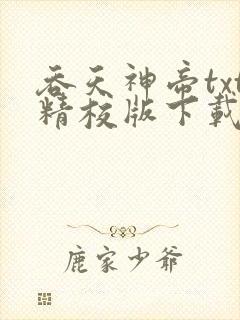 吞天神帝txt
精校版下载
鹿家少爷